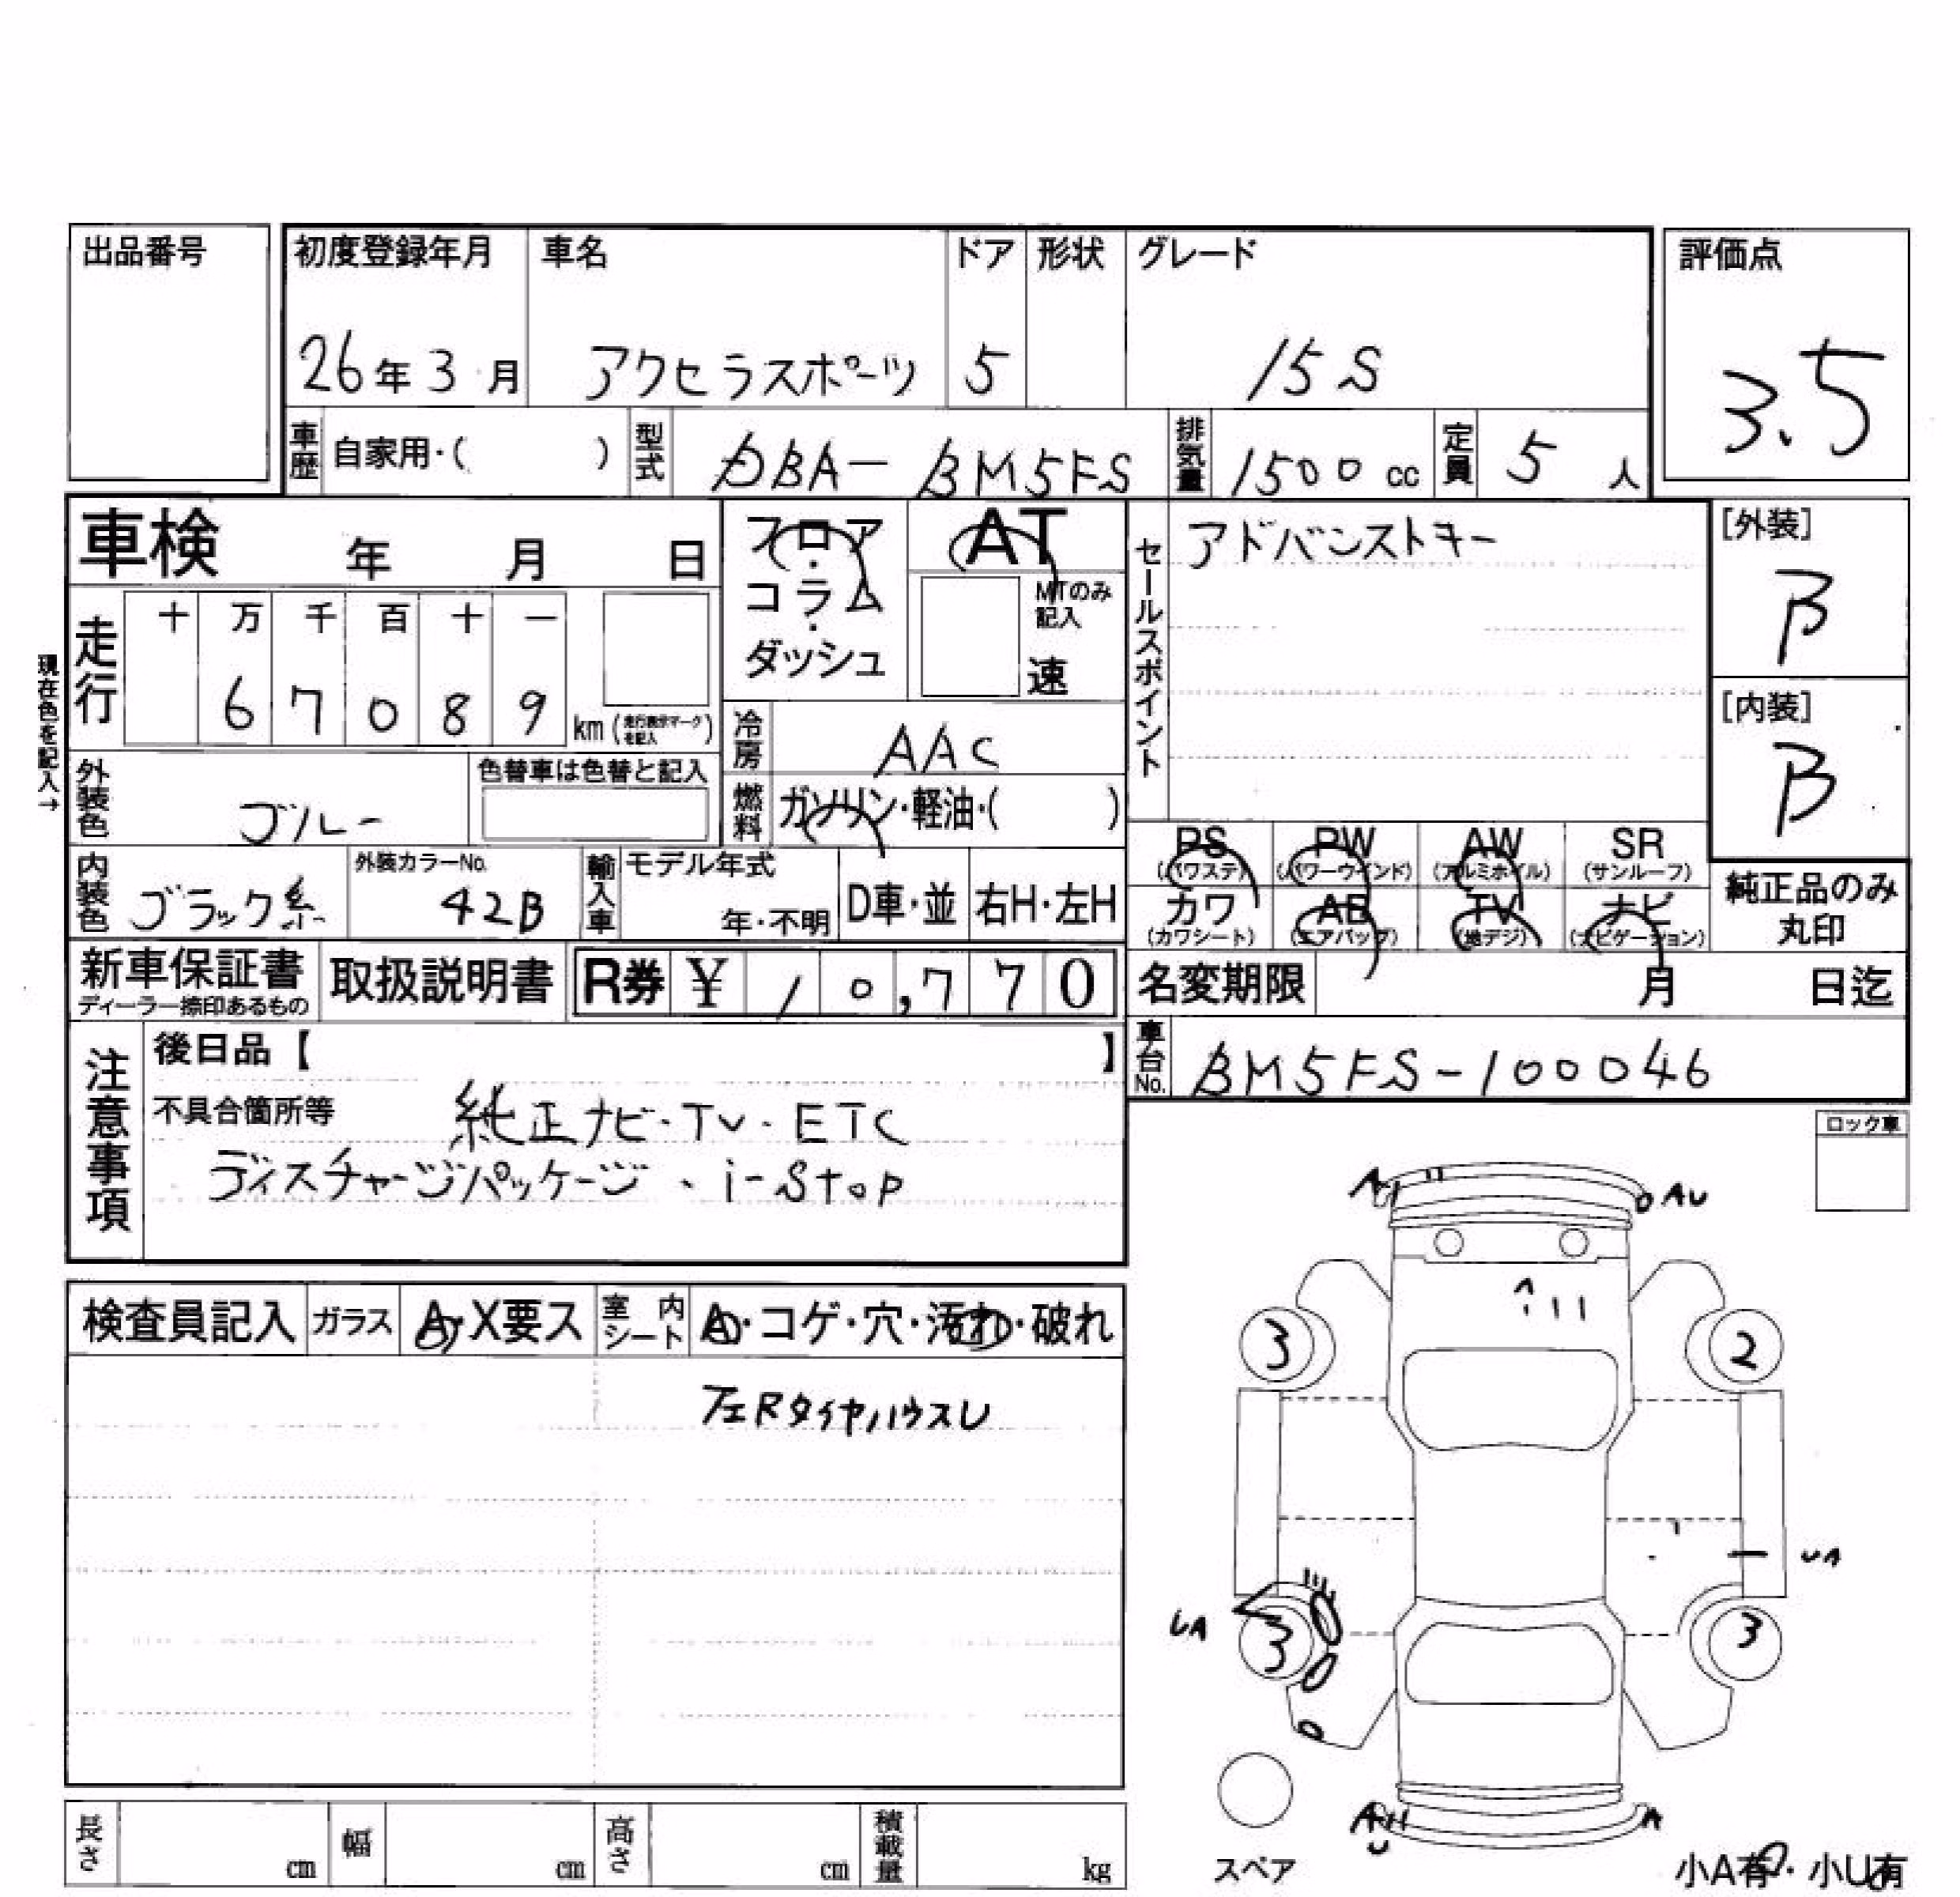 出品番号
初度登録年月 車名 ドア 形状 グレード 評価点
26年3月 アクセラスポーツ 5 15S
3.5
車歴 自家用・( ) 型式 DBA-BM5FS 排気量 1500cc 定員 5人
車検 年 月 日
フロア・コラム・ダッシュ
AT
MTのみ記入
速
セールスポイント
アドバンストキー
[外装]
B
[内装]
B
現在色を記入→
走行 十 万 千 百 十 一
6 7 0 8 9 km (走行表示マークを記入)
冷房 AAC
外装色 ブルー 色替車は色替と記入
燃料 ガソリン・軽油・( )
PS (パワステ) PW (パワーウインド) AW (アルミホイル) SR (サンルーフ)
カワ (カワシート) AB (エアバッグ) TV (地デジ) ナビ (ナビゲーション)
純正品のみ
丸印
内装色 ブラック系 外装カラーNo. 42B 輸入車 モデル年式 年・不明 D車・並 右H・左H
新車保証書 ディーラー捺印あるもの 取扱説明書 R券 ¥ 10,770
名変期限 月 日迄
車台No. BM5FS-100046
注意事項
後日品【 】
不具合箇所等 純正ナビ・TV・ETC
ディスチャージパッケージ・i-stop
ロック車
A AU
検査員記入 ガラス A・X要ス 室内シート A・コゲ・穴・汚れ・破れ
左Rタイヤハウスレ
3 2
UA
UA
3 3
A U A
スペア
小A有・小U有
長さ cm 幅 cm 高さ cm 積載量 kg